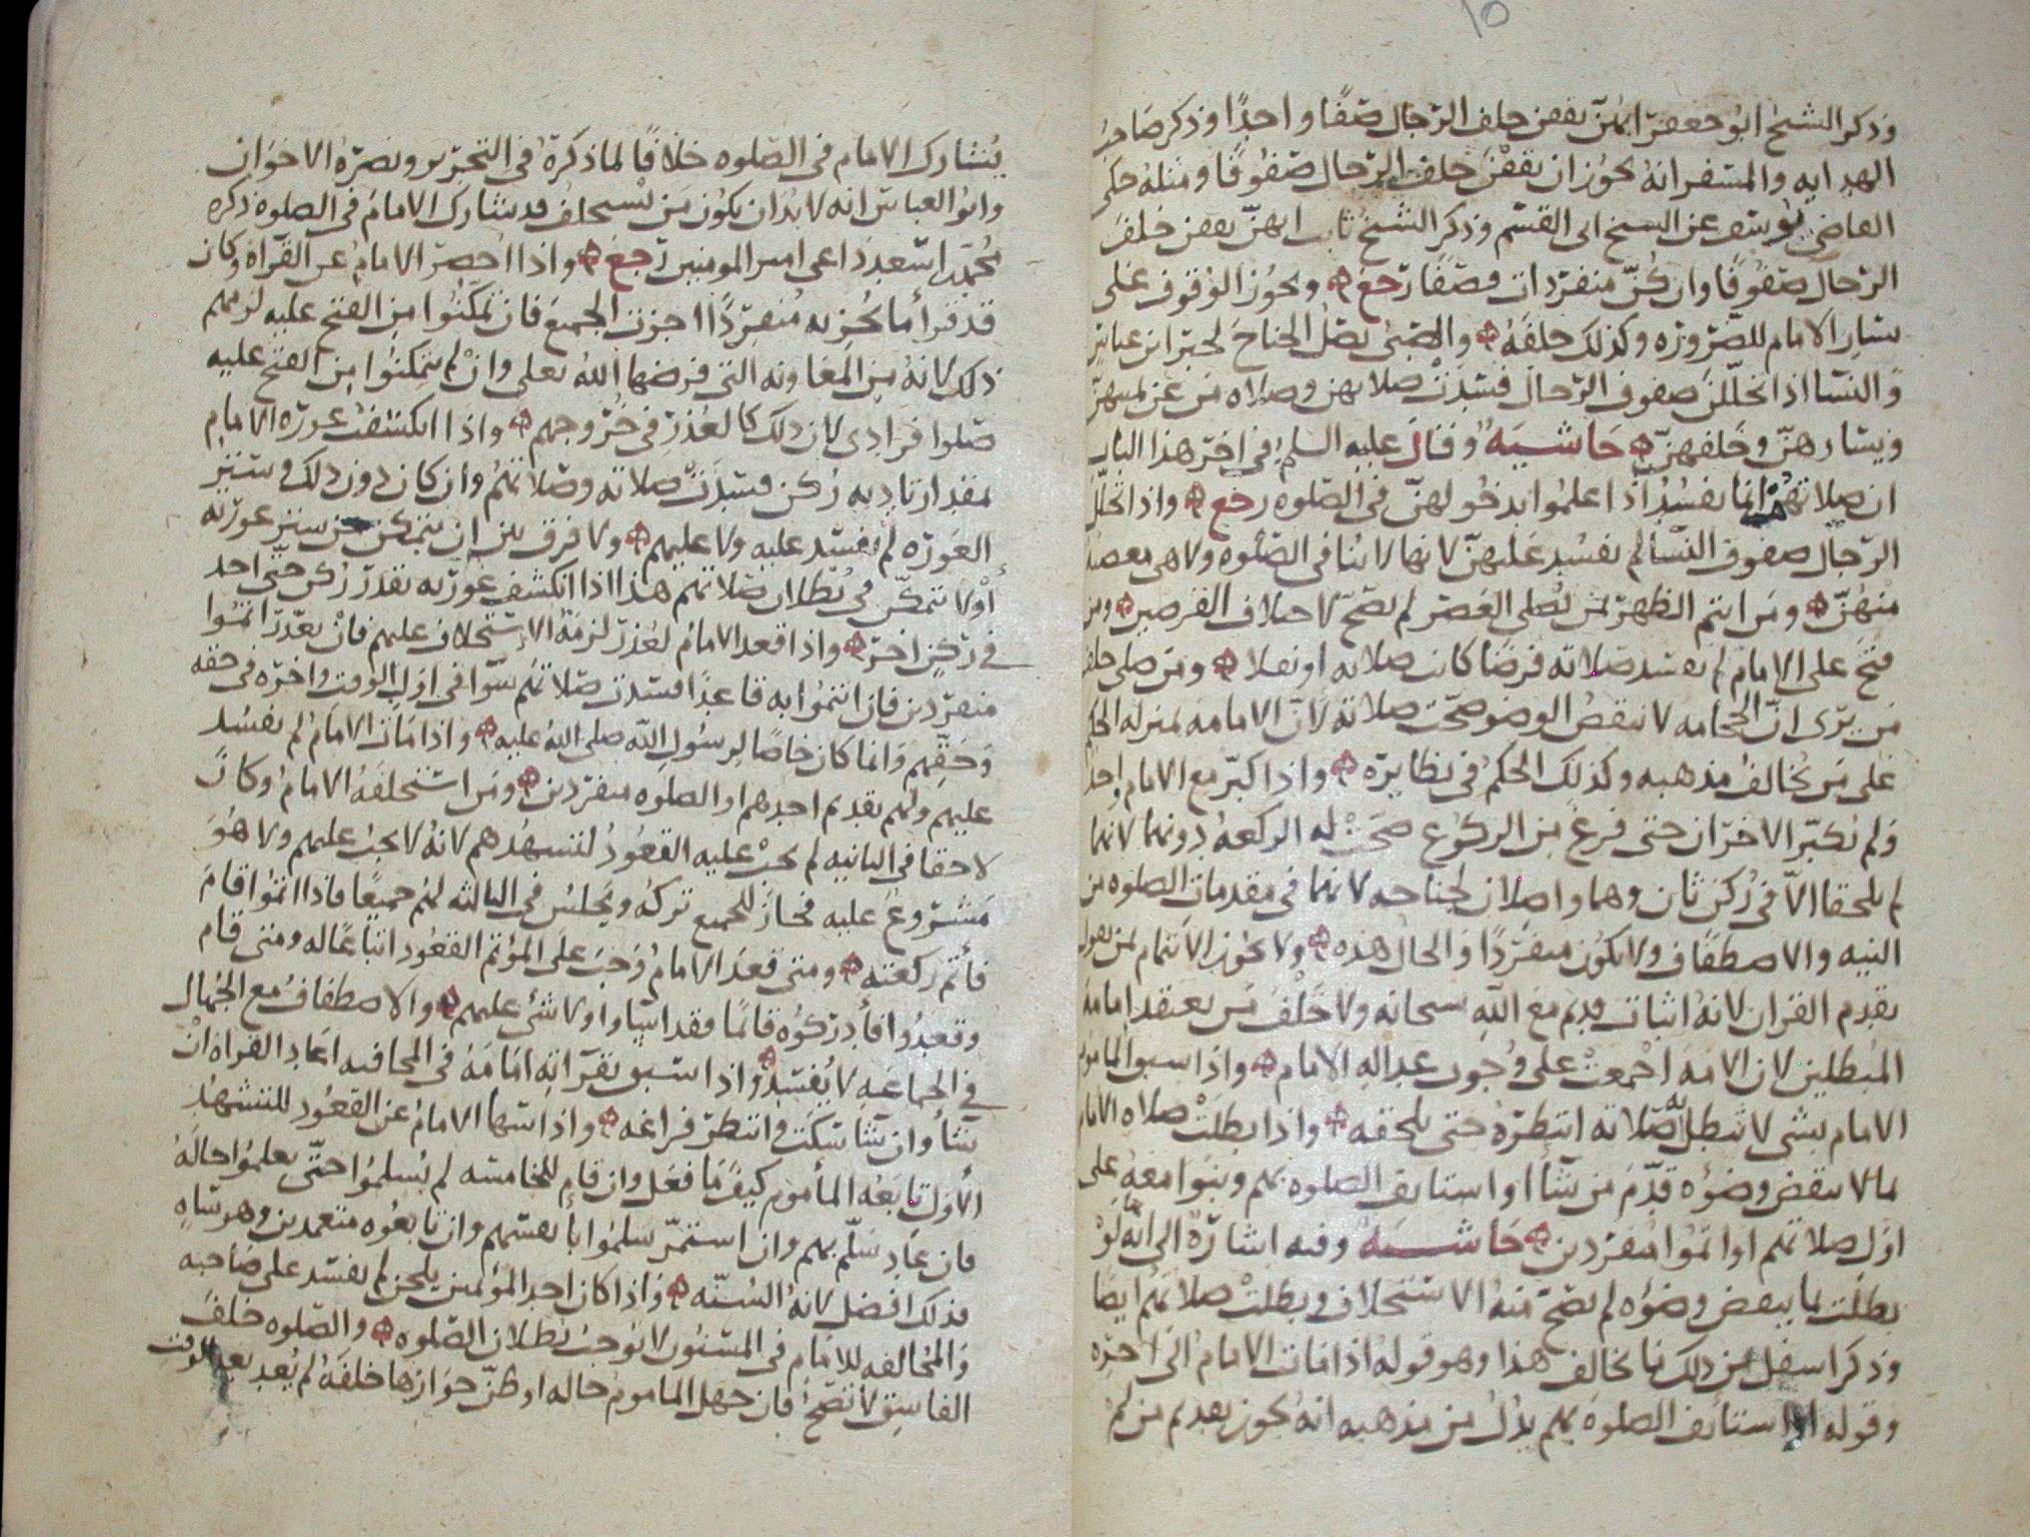 ١٥
وذكر الشيخ ابو جعفر انهن يقفن خلف الرجال صفا واحدا وذكر صاحب
الهدايه والمسفر انه يجوز ان يقفن خلف الرجال صفوفا ومثله حكى
القاضي يوسف عن الشيخ ابى القسم وذكر الشيخ ثابت انهن يقفن خلف
الرجال صفوفا وان كن منفردات فصفا رجع ويجوز الوقوف على
يسار الامام للضروره وكذلك خلفه والصبى يصل الجناح لخبر ابن عباس
والنسا اذا تخللن صفوف الرجال فسدت صلاتهن وصلاه من عن يمينهن
ويسارهن وخلفهن حاشيه وقال عليه السلم في اخر هذا الباب
ان صلاتهم انما تفسد اذا علموا بدخولهن في الصلوه رجع واذا تخلل
الرجال صفوف النسا لم تفسد عليهن لانها لا تنافى الصلوه ولا هى معصيه
منهن ومن ائتم الظهر بمن يصلى العصر لم تصح لاختلاف الفرضين ومن
فتح على الامام لم تفسد صلاته فرضا كانت صلاته او نفلا ومن صلى خلف
من يرى ان الحجامه لا تنقض الوضو صحت صلاته لان الامامه بمنزله الحكم
على من يخالف مذهبه وكذلك الحكم في نظايره واذا كبر مع الامام واحد
ولم يكبر الاخران حتى فرغ من الركوع صحت له الركعه دونهما لانهما
لم يلحقا الا في ركن ثان وهما واصلان لجناحه لانهما في مقدمات الصلوه من
النيه والاصطفاف ولا يكون منفردا والحال هذه ولا يجوز الائتمام بمن يقول
بقدم القران لانه اثبات قديم مع الله سبحانه ولا خلف من يعتقد امامه
المبطلين لان الامه اجمعت على وجوب عداله الامام واذا سبق الماموم
الامام بشى لا تبطل به صلاته انتظره حتى يلحقه واذا بطلت صلاه الامام
بما لا ينقض وضوه قدم من شأ او استانف الصلوه بهم وبنوا معه على
اول صلاتهم او اتموا منفردين حاشيه وفيه اشارة الى انه لو
بطلت بما ينقض وضوه لم تصح منه الاستخلاف وبطلت صلاتهم ايضا
وذكر اسفل من ذلك ما يخالف هذا وهو قوله اذا مات الامام الى اخره
وقوله استانف الصلوه بهم يدل من مذهبه انه يجوز تقديم من لم
يشارك الامام في الصلوه خلافا لما ذكره في التحرير ونصره الاخوان
وابو العباس انه لا بد ان يكون من يستخلف قد شارك الامام في الصلوه ذكره
محمد بن اسعد داعى امير المومنين رجع واذا احصر الامام عن القرآة وكان
قد قرأ ما يجزيه منفردا اجزت الجميع فان تمكنوا من الفتح عليه لزمهم
ذلك لانه من المعاونه التى فرضها الله تعلى وان لم يتمكنوا من الفتح عليه
صلوا فرادى لان ذلك كالعذر في خروجهم واذا انكشفت عورة الامام
بمقدار تاديه ركن فسدت صلاته وصلاتهم وان كان دون ذلك وستر
العوره لم تفسد عليه ولا عليهم ولا فرق بين ان يتمكن من ستر عورته
أو لا يتمكن في بطلان صلاتهم هذا اذا انكشف عورته بقدر ركن حتى اخذ
في ركن اخر واذا قعد الامام لعذر لزمه الاستخلاف عليهم فان تعذر اتموا
منفردين فان ائتموا به قاعدا فسدت صلاتهم سوا في اول الوقت واخره في حقه
وحقهم وانما كان خاصا لرسول الله صلى الله عليه واذا مات الامام لم تفسد
عليهم ولهم تقديم احدهم او الصلوه منفردين ومن استخلفه الامام وكان
لاحقا في الثانيه لم يجب عليه القعود لتشهدهم لانه لا يجب عليهم ولا هو
مشروع عليه فجاز للجميع تركه ويجلس في الثالثه لهم جميعا فاذا اتموا قام
فأتم ركعته ومتى قعد الامام وجب على المؤتم القعود اتباعا له ومتى قام
وقعدوا فأدركوه قائما فقد اساوا ولا شئ عليهم والاصطفاف مع الجهال
في الجماعه لا يفسد واذا سبق بقرآته امامه في المخافته اعاد القراه ان
شأ وان شأ سكت وانتظر فراغه واذا سها الامام عن القعود للتشهد
الأول تابعه المأموم كيف ما فعل وان قام للخامسه لم يسلموا حتى يعلموا حاله
فان عاد سلم بهم وان استمر سلموا بأنفسهم وان تابعوه متعمدين وهو ساه
فذلك افضل لانه السنه واذا كان احد المؤتمين يلحن لم تفسد على صاحبه
والمخالفه للامام في المسنون لا توجب بطلان الصلوه والصلوه خلف
الفاسق لا تصح فان جهل الماموم حاله او ظن جوازها خلفه لم يعد بعد الوقت